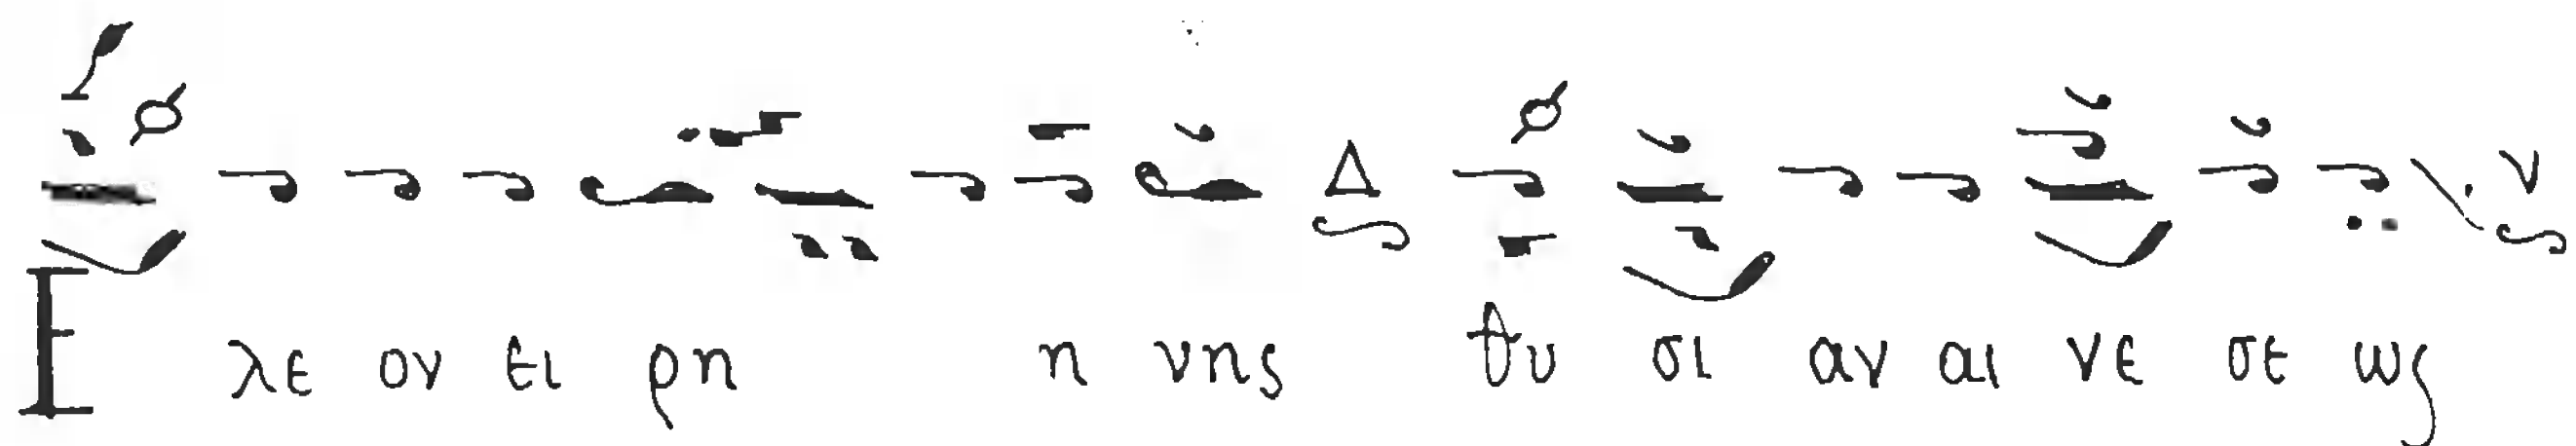 Ε λε ον ει ρη η νης θυ σι αν αι νε σε ως